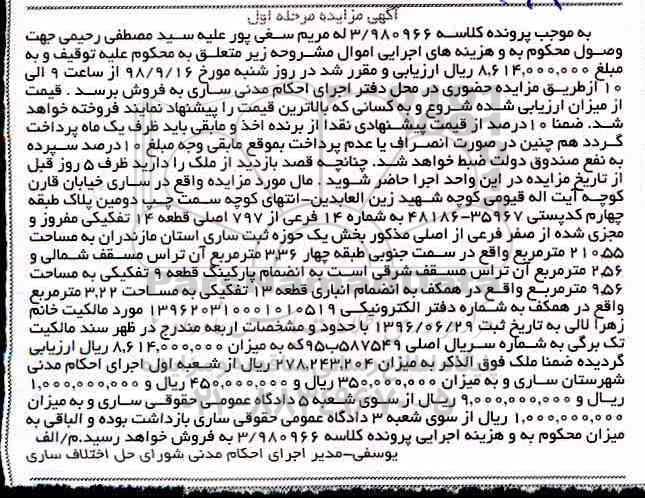 آگهی مزایده مرحله اول
به موجب پرونده کلاسه ۳/۹۸۰۹۶۶ له مریم سغی پور علیه سید مصطفی رحیمی جهت
وصول محکوم به و هزینه های اجرایی اموال مشروحه زیر متعلق به محکوم علیه توقیف و به
مبلغ ۸,۶۱۴,۰۰۰,۰۰۰ ریال ارزیابی و مقرر شد در روز شنبه مورخ ۹۸/۹/۱۶ از ساعت ۹ الی
۱۰ ازطریق مزایده حضوری در محل دفتر اجرای احکام مدنی ساری به فروش برسد . قیمت
از میزان ارزیابی شده شروع و به کسانی که بالاترین قیمت را پیشنهاد نمایند فروخته خواهد
شد. ضمنا ۱۰درصد از قیمت پیشنهادی نقدا از برنده اخذ و مابقی باید ظرف یک ماه پرداخت
گردد هم چنین در صورت انصراف یا عدم پرداخت بموقع مابقی وجه مبلغ ۱۰درصد سپرده
به نفع صندوق دولت ضبط خواهد شد. چنانچه قصد بازدید از ملک را دارید ظرف ۵ روز قبل
از تاریخ مزایده در این واحد اجرا حاضر شوید . مال مورد مزایده واقع در ساری خیابان قارن
کوچه آیت اله قیومی کوچه شهید زین العابدین-انتهای کوچه سمت چپ دومین پلاک طبقه
چهارم کدپستی ۳۵۹۶۷-۴۸۱۸۶ به شماره ۱۴ فرعی از ۷۹۷ اصلی قطعه ۱۴ تفکیکی مفروز و
مجزی شده از صفر فرعی از اصلی مذکور بخش یک حوزه ثبت ساری استان مازندران به مساحت
۲۱۰.۵۵ مترمربع واقع در سمت جنوبی طبقه چهار ۳.۳۶ مترمربع آن تراس مسقف شمالی و
۲.۵۶ مترمربع آن تراس مسقف شرقی است به انضمام پارکینگ قطعه ۹ تفکیکی به مساحت
۹.۵۶ مترمربع واقع در همکف به انضمام انباری قطعه ۱۳ تفکیکی به مساحت ۳.۲۲ مترمربع
واقع در همکف به شماره دفتر الکترونیکی ۱۳۹۶۲۰۳۱۰۰۰۱۰۱۰۵۱۹ مورد مالکیت خانم
زهرا لالی به تاریخ ثبت ۱۳۹۶/۰۶/۲۹ باحدود و مشخصات اربعه مندرج در ظهر سند مالکیت
تک برگی به شماره سریال اصلی ۵۸۷۵۴۹ب۹۵که به میزان ۸,۶۱۴,۰۰۰,۰۰۰ ریال ارزیابی
گردیده ضمنا ملک فوق الذکر به میزان ۲۷۸,۲۴۳,۲۰۴ ریال از شعبه اول اجرای احکام مدنی
شهرستان ساری و به میزان ۳۵۰,۰۰۰,۰۰۰ ریال و ۴۵۰,۰۰۰,۰۰۰ ریال و ۱,۰۰۰,۰۰۰,۰۰۰
ریال و ۹,۰۰۰,۰۰۰,۰۰۰ ریال از سوی شعبه ۵ دادگاه عمومی حقوقی ساری و به میزان
۱,۰۰۰,۰۰۰,۰۰۰ ریال از سوی شعبه ۳ دادگاه عمومی حقوقی ساری بازداشت بوده و الباقی به
میزان محکوم به و هزینه اجرایی پرونده کلاسه ۳/۹۸۰۹۶۶ به فروش خواهد رسید.م/الف
یوسفی-مدیر اجرای احکام مدنی شورای حل اختلاف ساری